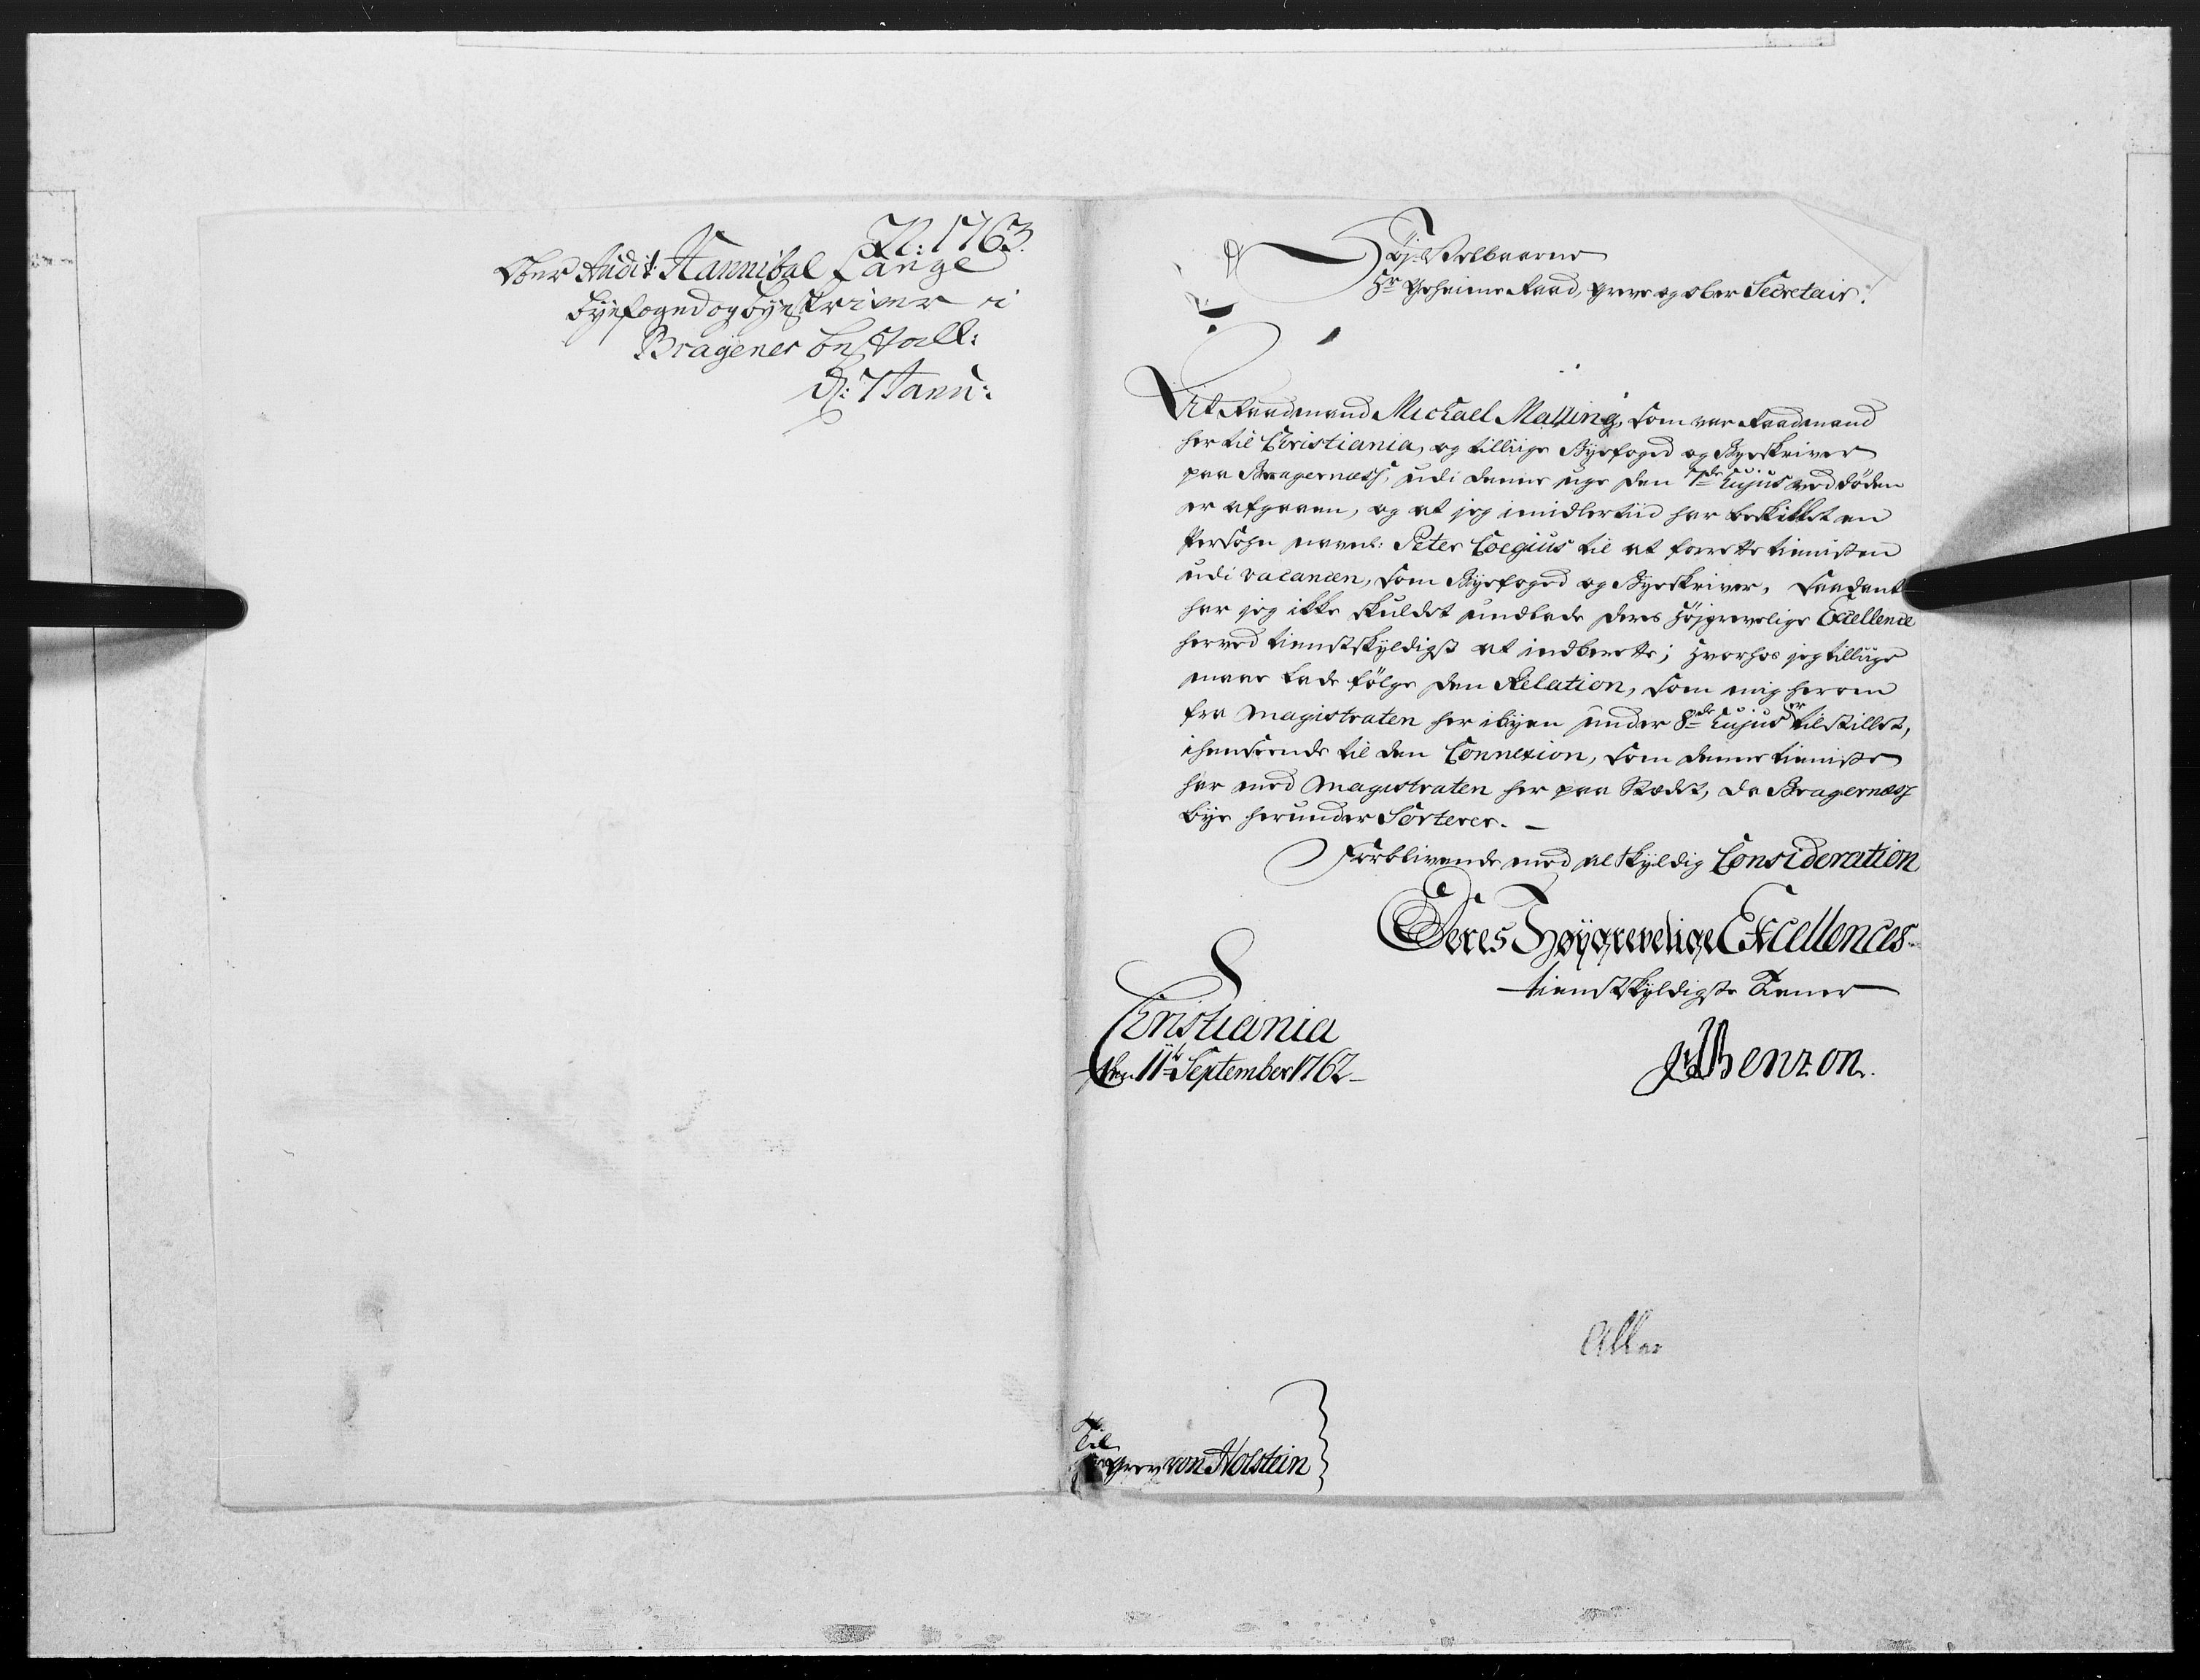 N: 1763.
Ober Audit: Hannibal Lange
Byefoged og Byeskriver i
Bragenes bestall:
d: 7 Janu:
Høj-Velbaarne
Hr Geheime Raad, Greve og ober Secretair!
At Raadmand Michael Malling, som var Raadmand
her til Christiania, og tilliige Byefoged og Byeskriver
paa Bragernæss, udi denne uge den 7de hujus ved döden
er afgaaen, og at jeg imidlertiid har beskikket en
Persohn navnl: Peter Coegius til at forrette tienisten
udi vacancen, som Byefoged og Byeskriver, saadant
har jeg ikke skuldet undlade Deres Höjgrevelige Excellence
herved tienstskyldigst at indberette; hvorhos jeg tilliige
maae lade fölge den Relation, som mig herom
fra Magistraten her i byen under 8de hujus er tilstillet,
i henseende til den Connexion, som denne tieniste
har med Magistraten her paa Stædet, da Bragernæss
bye herunder Sorterer. –
Forblivende med al skyldig Consideration
Deres Høygrevelige Excellences
tienstskyldigste Tiener
Christiania
den 11te September 1762
Benzon.
Til
Greve von Holstein